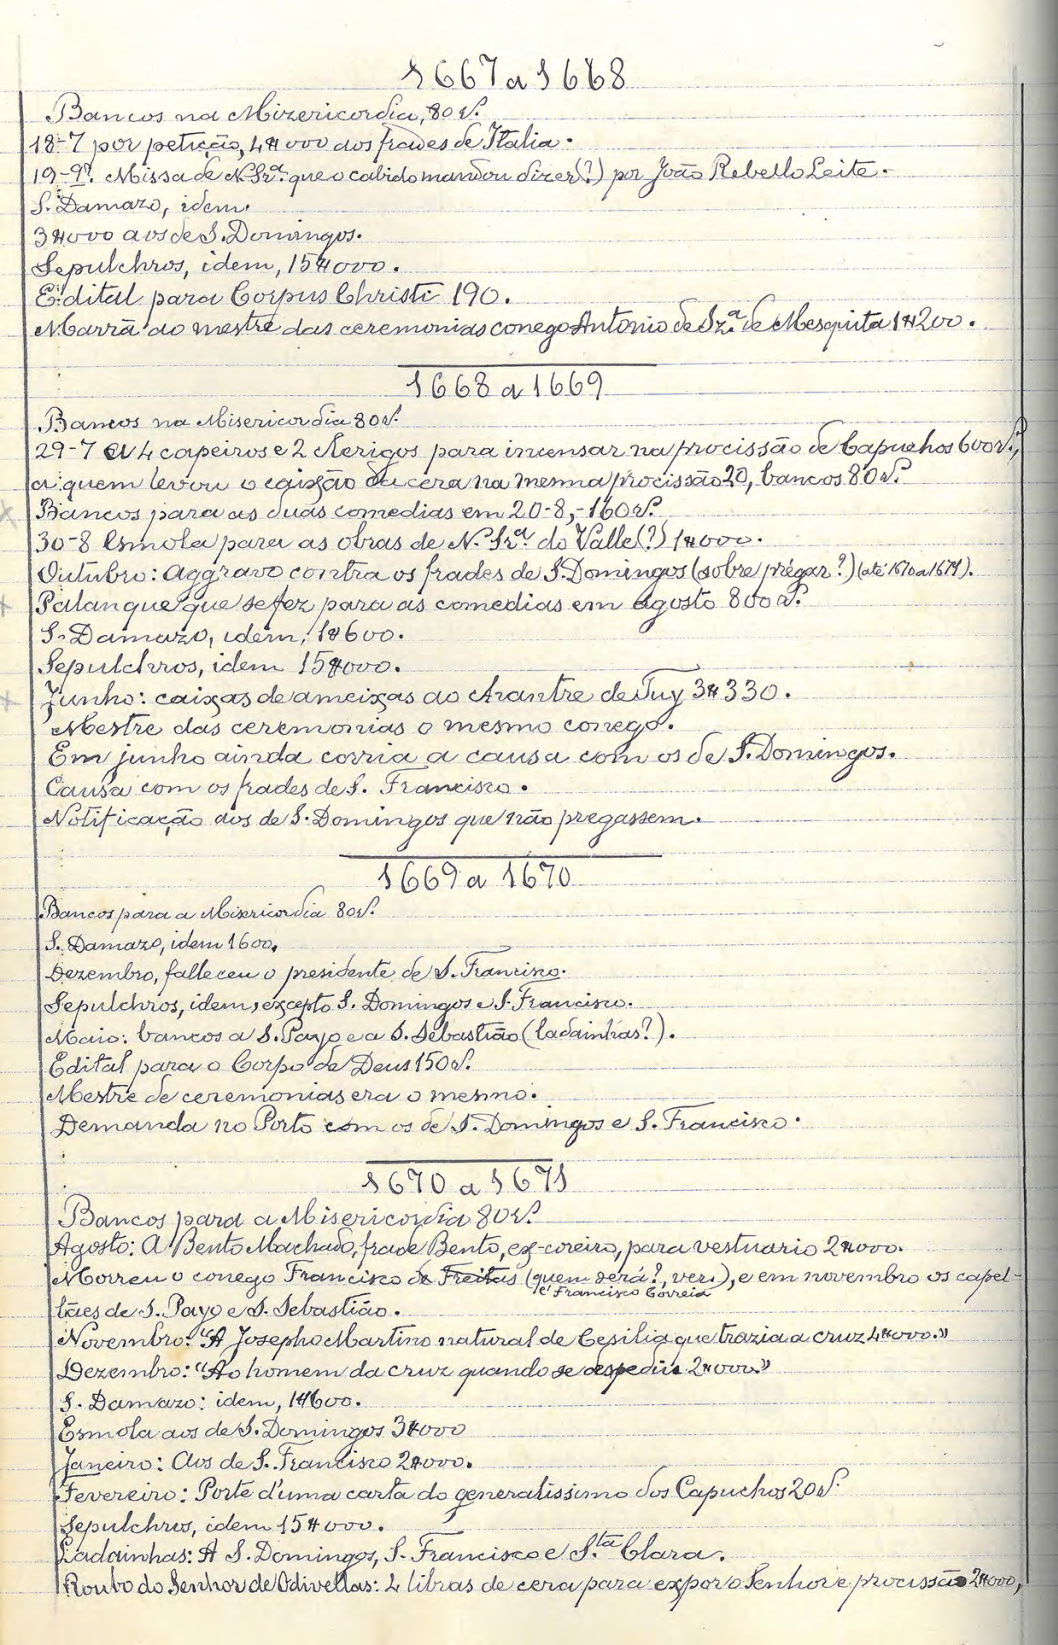 1667 a 1668
Bancos na Mizericordia, 80 rs.
18-7 por petição, 4$000 aos frades de Italia.
19-9º Missa de N. Srª. que o cabido mandou dizer (?) por João Rebello Leite.
S. Damazo, idem.
3$000 aos de S. Domingos.
Sepulchros, idem, 15$000.
Edital para Corpus Christi 190.
Marrã ao mestre das ceremonias conego Antonio de Szª. de Mesquita 1$200.
1668 a 1669
Bancos na Misericordia 80 rs.
29-7 A 4 capeiros e 2 clerigos para incensar na procissão de Capuchos 600 rs.,
a quem levou o caixão da cera na mesma procissão 20, bancos 80 rs.
Bancos para as duas comedias em 20-8,-160 rs.
30-8 Esmola para as obras de N. Srª. do Valle (?) 1$000.
Outubro: Aggravo contra os frades de S. Domingos (sobre prégar?) (até 1670 a 1671).
Palanque que se fez para as comedias em agosto 800 rs.
S. Damazo, idem, 1$600.
Sepulchros, idem 15$000.
Junho: caixas de ameixas ao Arantre de Tuy 3$330.
Mestre das ceremonias o mesmo conego.
Em junho ainda corria a causa com os de S. Domingos.
Causa com os frades de S. Francisco.
Notificação aos de S. Domingos que não pregassem.
1669 a 1670
Bancos para a Misericordia 80 rs.
S. Damazo, idem 1600.
Dezembro, falleceu o presidente de S. Francisco.
Sepulchros, idem, excepto S. Domingos e S. Francisco.
Maio: bancos a S. Payo e a S. Sebastião (ladainhas?).
Edital para o Corpo de Deus 150 rs.
Mestre de ceremonias era o mesmo.
Demanda no Porto com os de S. Domingos e S. Francisco.
1670 a 1671
Bancos para a Misericordia 80 rs.
Agosto: A Bento Machado, frade Bento, ex-coreiro, para vestuario 2$000.
Morreu o conego Francisco de Freitas (quem será?, ver.), e em novembro os capel-
é Francisco Correia
lães de S. Payo e S. Sebastião.
Novembro: "A Josepho Martino natural de Cesilia que trazia a cruz 4$000."
Dezembro: "Ao homem da cruz quando se despediu 2$000"
S. Damazo: idem, 1$600.
Esmola aos de S. Domingos 3$000
Janeiro: Aos de S. Francisco 2$000.
Fevereiro: Porte d'uma carta do generalissimo dos Capuchos 20 rs.
Sepulchros, idem 15$000.
Ladainhas: A S. Domingos, S. Francisco e S.ta Clara.
Roubo do Senhor de Odivellas: 4 libras de cera para expor o Senhor e procissão 2$000,